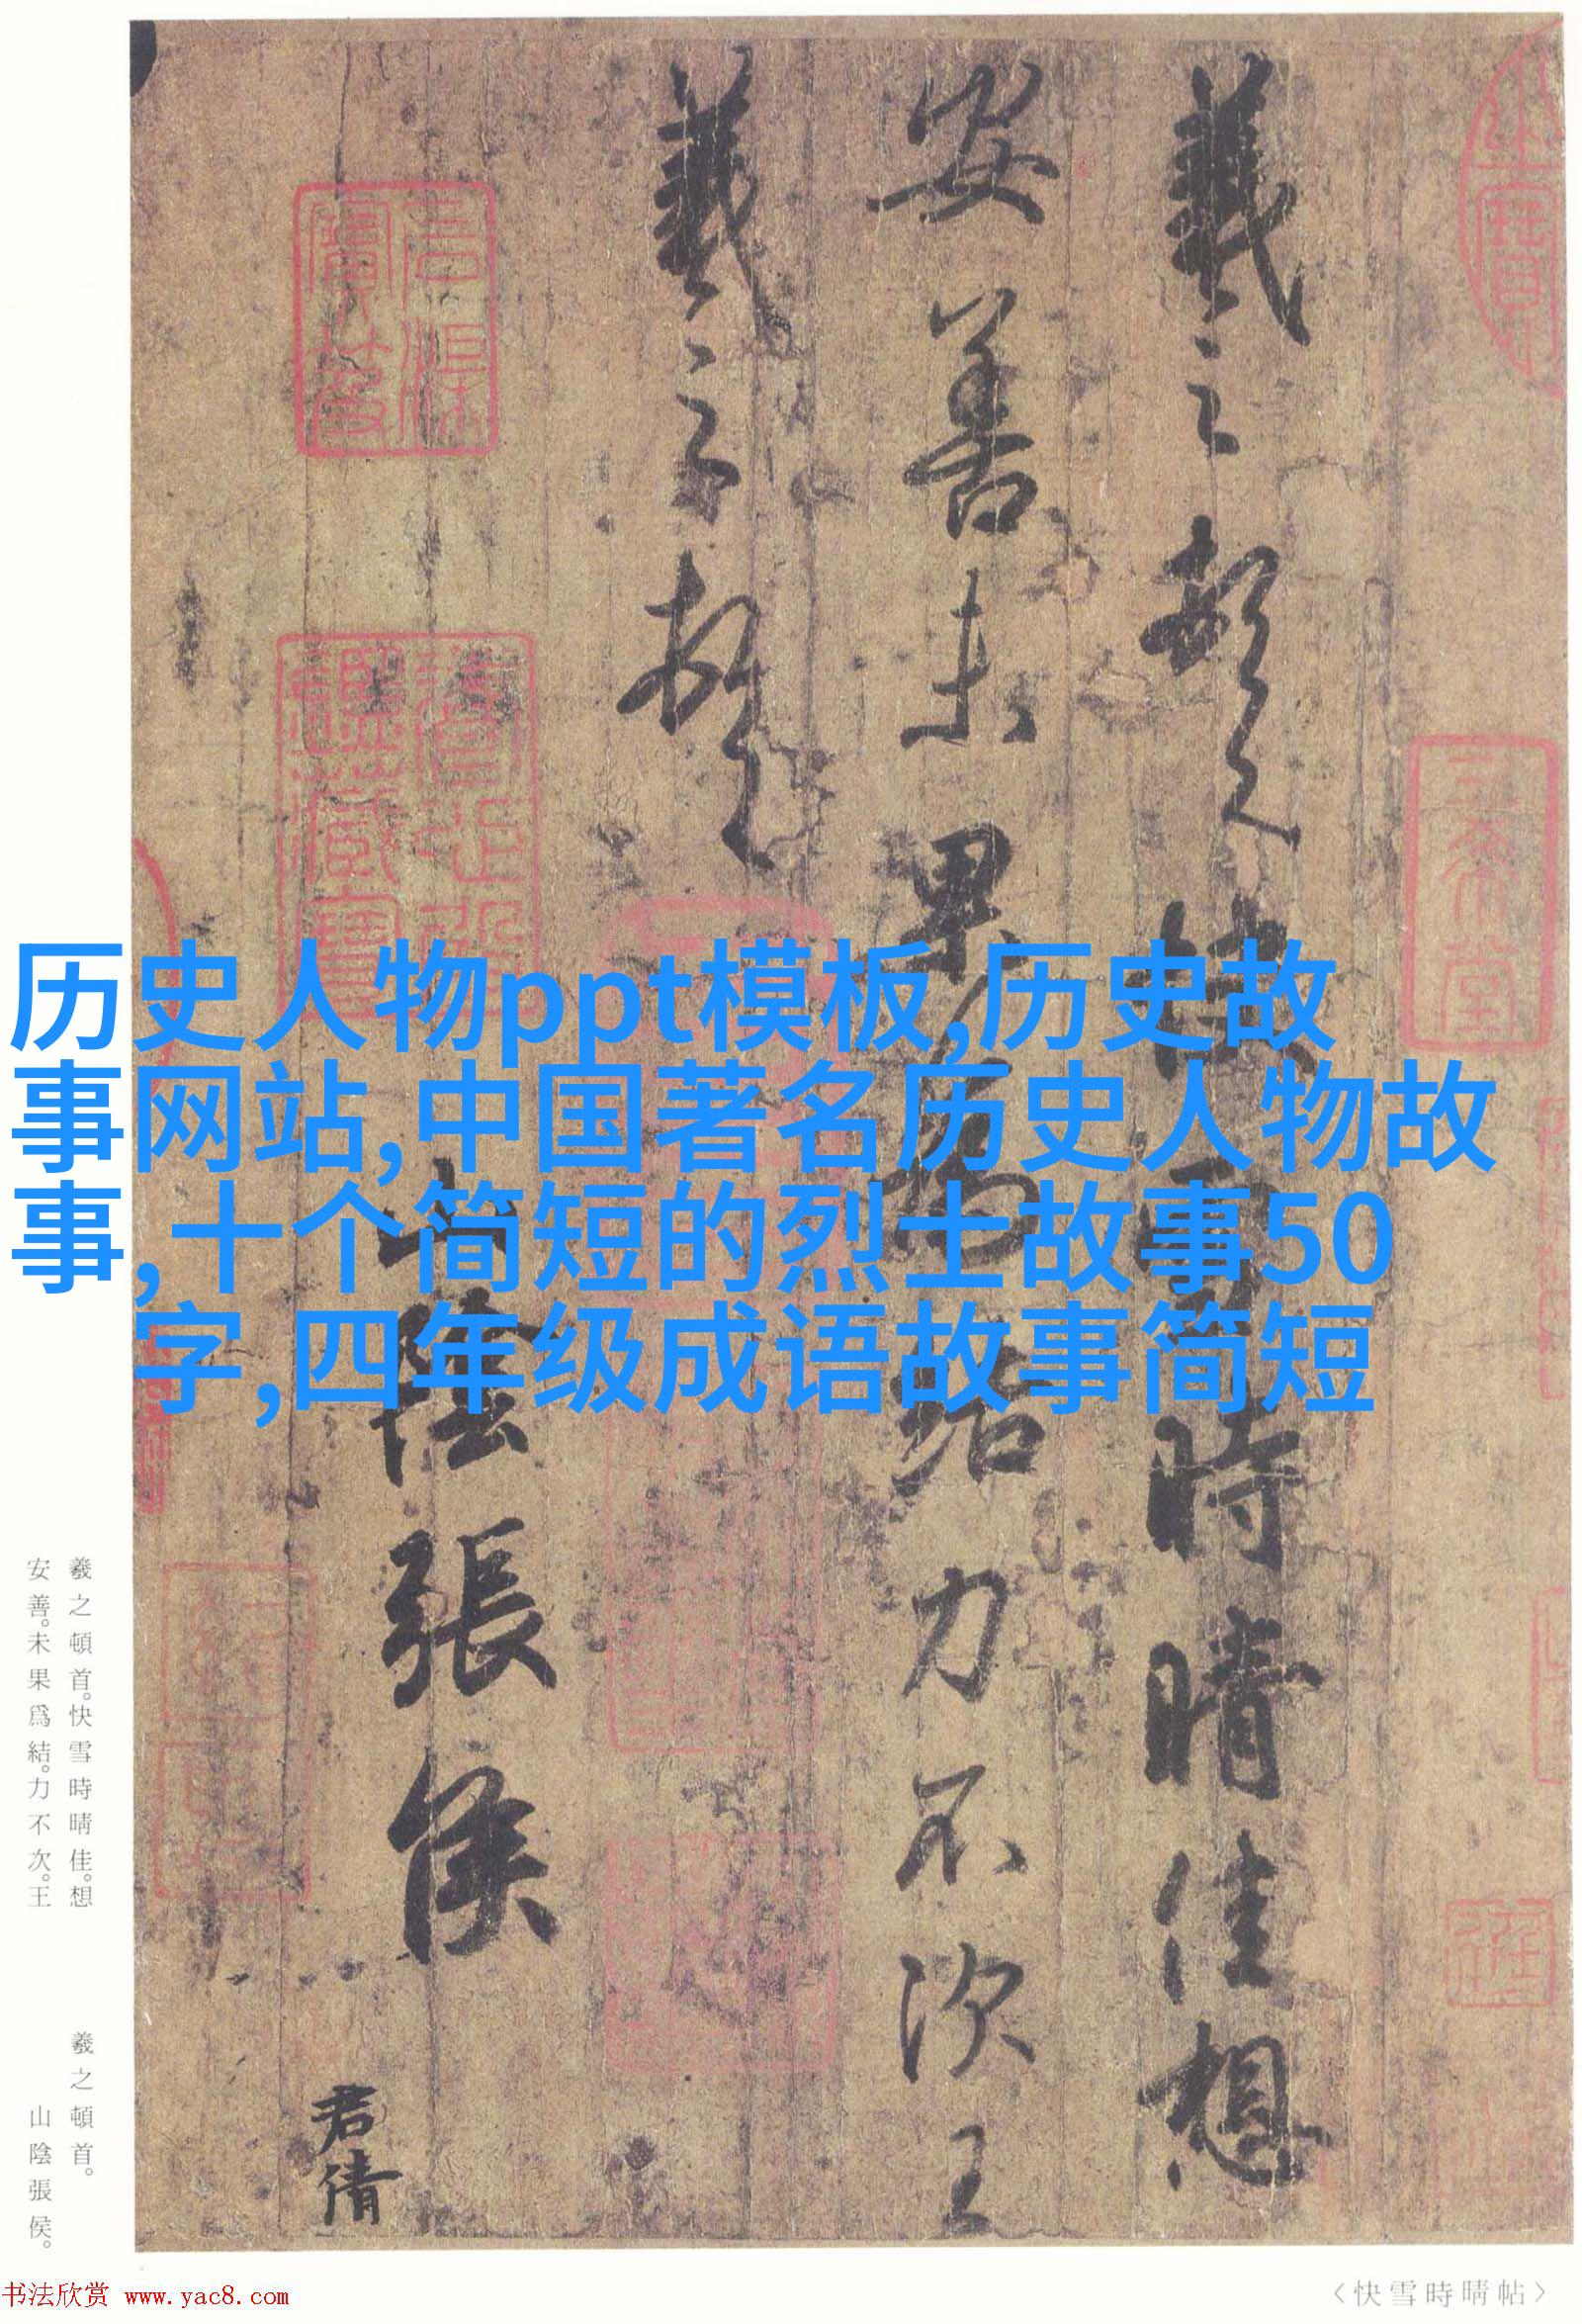 历史人物ppt模板,历史故
事网站,中国著名历史人物故
事,十个简短的烈士故事50
字,四年级成语故事简短
羲之頓首快雪時晴佳想
安善未果為結力不次王
羲之頓首
山陰張侯
君倩
三希堂
羲之頓首。快雪時晴佳。想
安善。未果爲結。力不次。王
羲之頓首。
山陰張侯。
书法欣赏 www.yac8.com
〈快雪時晴帖〉